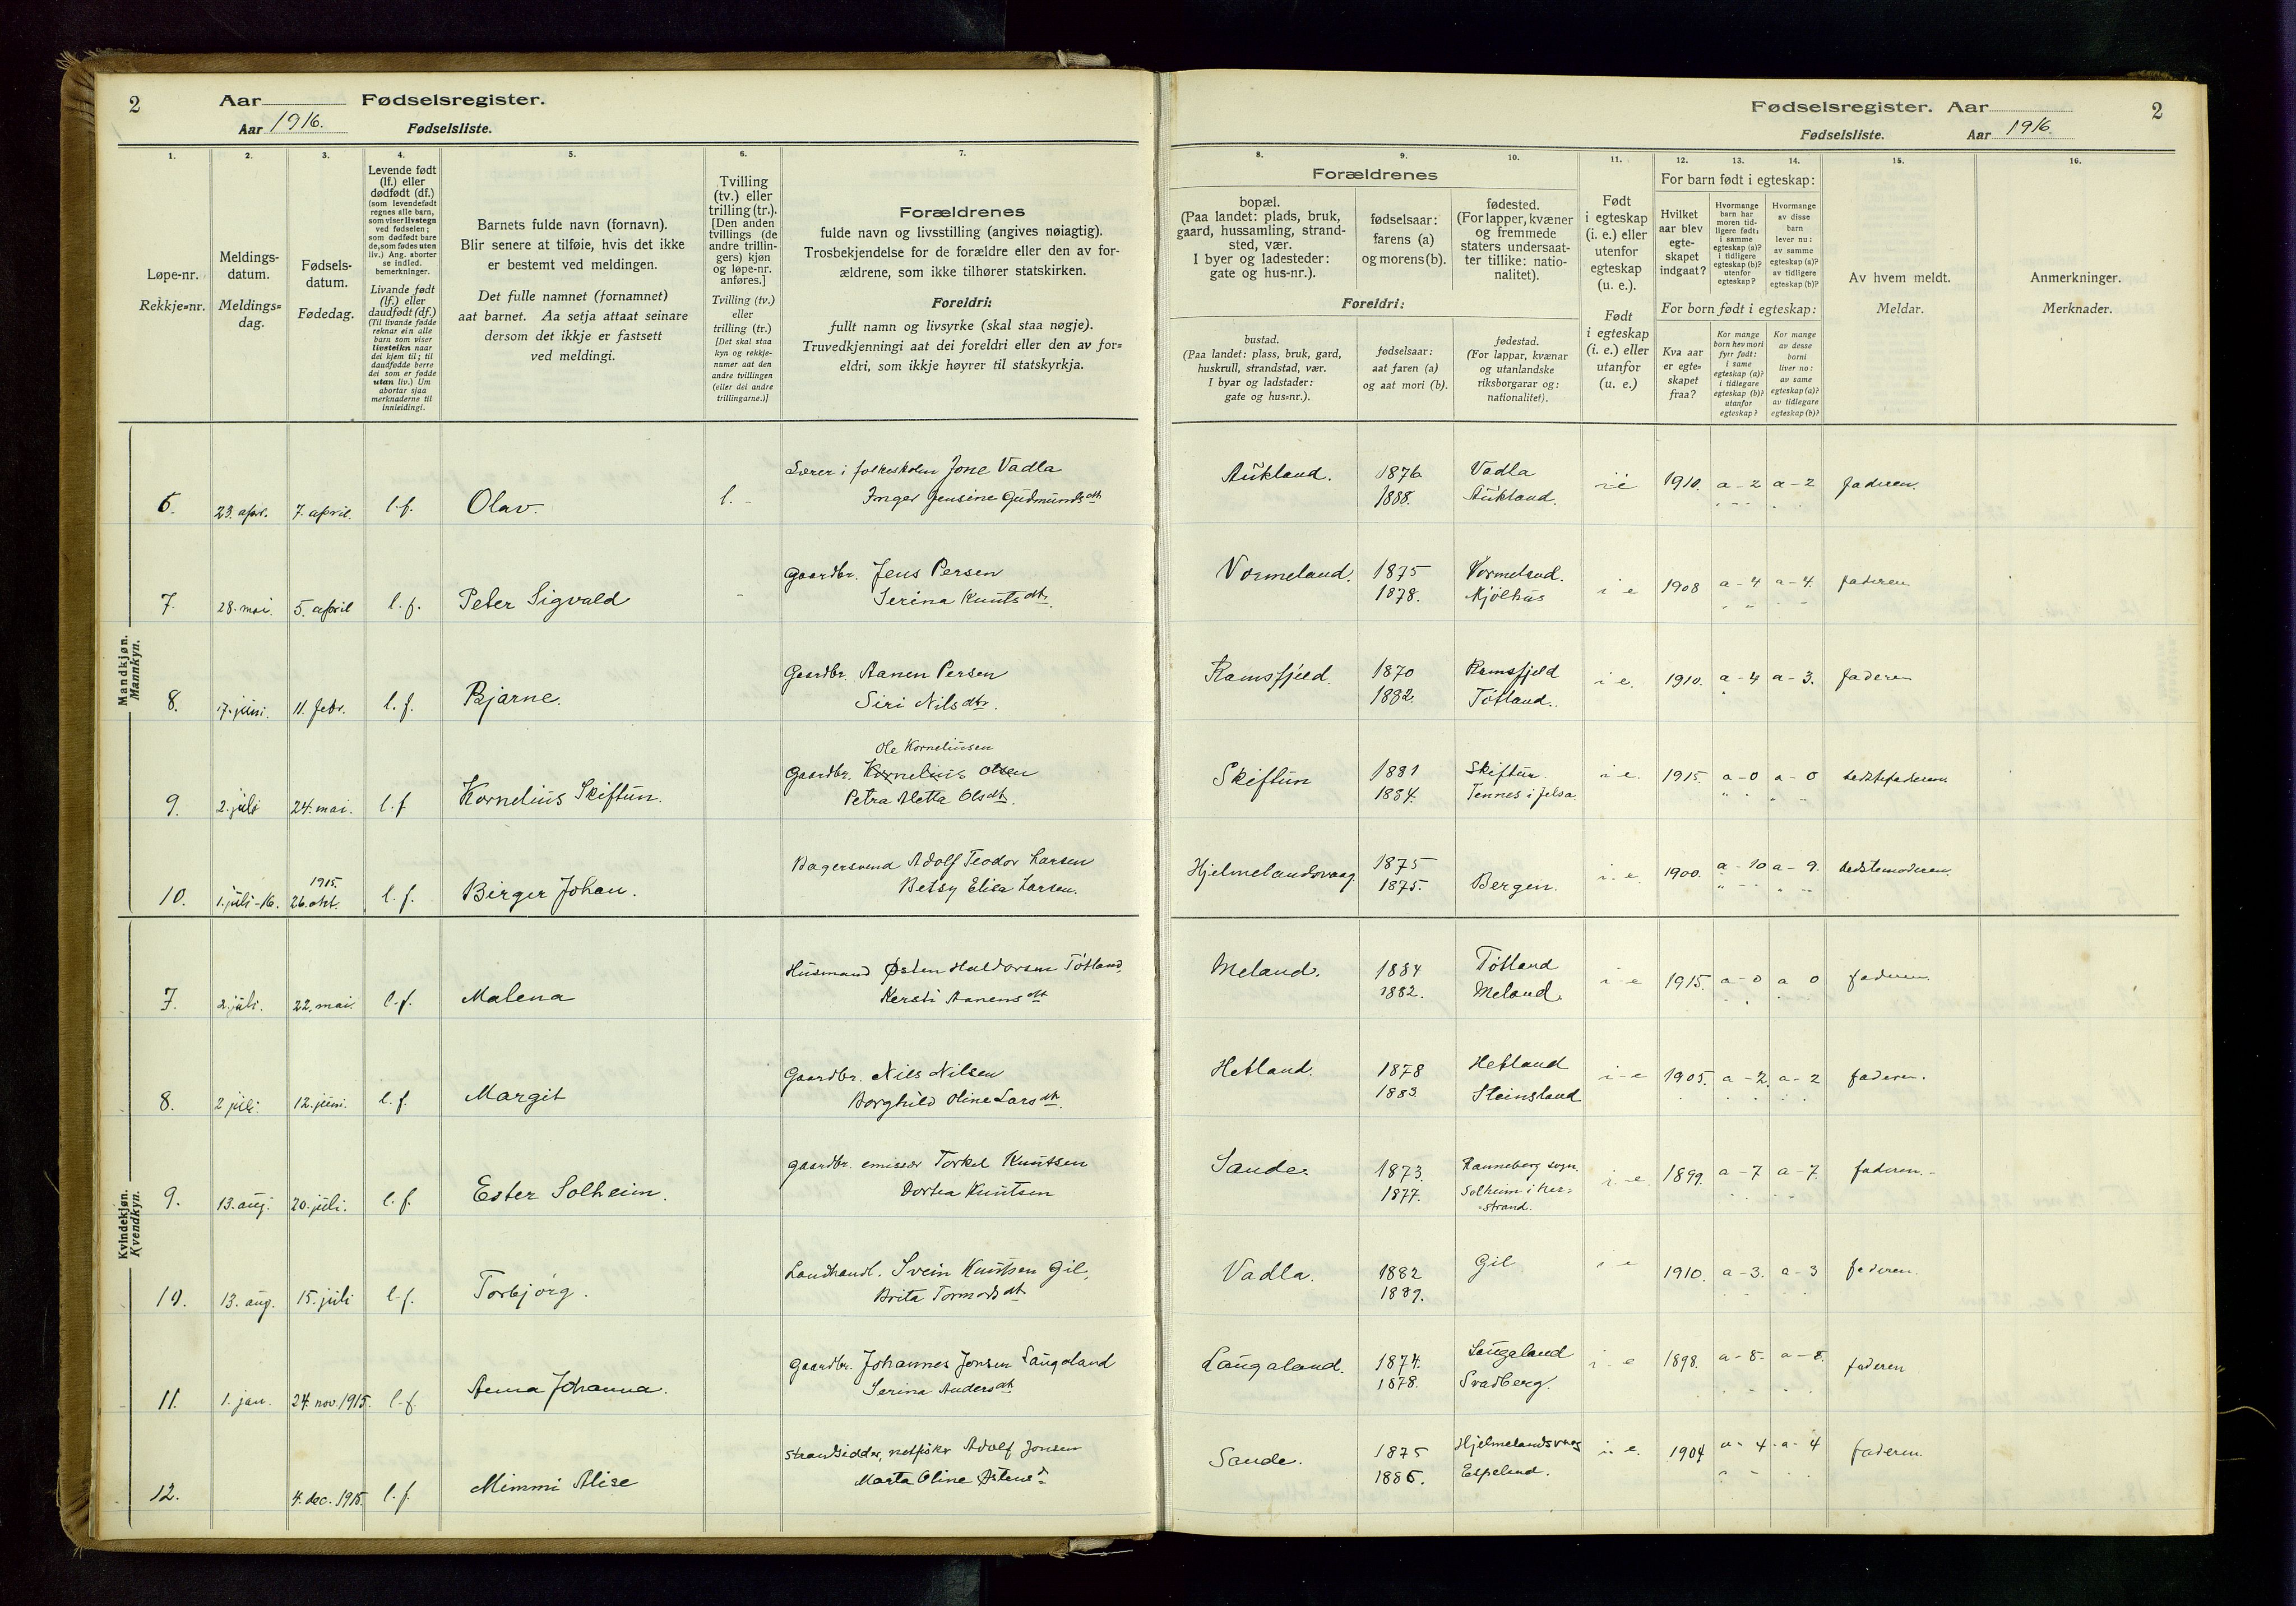 2
Aar Fødselsregister.
Aar 1916. Fødselsliste.
Fødselsregister. Aar 2
Fødselsliste. Aar 1916.
1. 2. 3. 4. 5. 6. 7. 8. 9. 10. 11. 12. 13. 14. 15. 16.
Løpe-nr.
Rekkje=nr.
Meldings-
datum.
Meldings=
dag.
Fødsels-
datum.
Fødedag.
Levende født
(lf.) eller
dødfødt (df.)
(som levendefødt
regnes alle barn,
som viser livstegn
ved fødselen;
som dødfødt bare
de, som fødes uten
liv.) Ang. aborter
se indled.
bemerkninger.
Livande født
(lf.) eller
daudfødt (df.)
(Til livande fødde
reknar ein alle
barn som viser
livsteikn naar
dei kjem til; til
daudfødde berre
dei som er fødde
utan liv.) Um
abortar sjaa
merknaderne til
innleidingi.
Barnets fulde navn (fornavn).
Blir senere at tilføie, hvis det ikke
er bestemt ved meldingen.
Det fulle namnet (fornamnet)
aat barnet. Aa setja attaat seinare
dersom det ikkje er fastsett
ved meldingi.
Tvilling
(tv.) eller
trilling (tr.).
[Den anden
tvillings (de
andre trillin-
gers) kjøn
og løpe-nr.
anføres.]
Tvilling (tv.)
eller
trilling (tr.)
[Det skal staa
kyn og rekkje-
numer aat den
andre tvillingen
(eller dei andre
trillingarne.)]
Forældrenes
fulde navn og livsstilling (angives nøiagtig).
Trosbekjendelse for de forældre eller den av for-
ældrene, som ikke tilhører statskirken.
Foreldri:
fullt namn og livsyrke (skal staa nøgje).
Truvedkjenningi aat dei foreldri eller den av for=
eldri, som ikkje høyrer til statskyrkja.
Forældrenes
bopæl.
(Paa landet: plads, bruk,
gaard, hussamling, strand-
sted, vær.
I byer og ladesteder:
gate og hus-nr.).
fødselsaar:
farens (a)
og morens (b).
fødested.
(For lapper, kvæner
og fremmede
staters undersaat-
ter tillike: natio-
nalitet).
Foreldri:
bustad.
(Paa landet: plass, bruk, gard,
huskrull, strandstad, vær.
I byar og ladstader:
gate og hus=nr.).
fødselsaar:
aat faren (a)
og aat mori (b).
fødestad.
(For lappar, kvænar
og utanlandske
riksborgarar og:
nationalitet).
Født
i egteskap
(i. e.) eller
utenfor
egteskap
(u. e.).
Født
i egteskap
(i. e.) eller
utanfor
(u. e.)
For barn født i egteskap:
Hvilket
aar blev
egte-
skapet
indgaat?
Hvormange
barn har
moren tid-
ligere født:
i samme
egteskap (a)?
i tidligere
egteskap (b)?
utenfor
egteskap?
Hvormange
av disse
barn
lever nu:
av samme
egteskap (a)?
av tidligere
egteskap (b)?
For born født i egteskap:
Kva aar
er egte=
skapet
fraa?
Kor mange
born hev mori
fyrr født:
i same
egteskap (a)?
i tidlegare
egteskap (b)?
utanfor
egteskap?
Kor mange
av desse
borni
liver no:
av same
egteskap (a)?
av tidlegare
egteskap (b)?
Av hvem meldt.
Meldar.
Anmerkninger.
Merknader.
Mandkjøn.
Mannkyn.
6. 23. apr. 7. april. l. f. Olav. Lærer i folkeskolen Jone Vadla
Inger Jensine Gudmundsdtr Aukland. 1876 1888. Vadla Aukland. i e 1910. a - 2 a - 2 faderen.
7. 28. mai. 5. april l. f. Peter Sigvald Gaardbr. Jens Persen
Serina Knutsdtr. Vormeland. 1875 1878. Vormeland. Kjölhus i e 1908 a - 4 a - 4. faderen
8. 17. juni. 11. febr. l. f. Bjarne. Gaardbr. Aanen Persen
Siri Nilsdtr. Ramsfjeld. 1870 1882. Ramsfjeld Tötland. i e. 1910. a - 4 a - 3. faderen
9. 2. juli 24. mai. l. f. Kornelius Skiftun. Ole Korneliusen
Gaardbr. Kornelius Olsen
Petra Metta Olsdtr. Skiftun 1881 1884. Skiftun. Tennes i Jelsa. i e. 1915. a - 0 a - 0 bedstefaderen.
10. 1. juli - 16. 1915. 26. okt. l. f. Birger Johan. Bagersvend Adolf Teodor Larsen
Betsy Elisa Larsen. Hjelmelandsvaag. 1875 1875. Bergen. i. e. 1900. a - 10 a - 9. bedstemoderen.
Kvindekjøn.
Kvendkyn.
7. 2. juli. 22. mai. l. f. Malena Husmand Østen Haldorsen Tötland.
Kersti Aanensdtr Meland. 1884 1882. Tötland Meland. i e 1915. a - 0 a 0 faderen.
8. 2 juli. 12. juni. l. f. Margit Gaardbr. Nils Nilsen
Borghild Oline Larsdtr. Hetland. 1878 1883. Hetland Steinsland i - e 1905. a - 2 a - 2 faderen.
9. 13. aug. 20. juli. l. f. Ester Solheim. gaardbr. emissær Torkel Knutsen
Dortea Knutsen Sande. 1873. 1877. Ranneberg sogn. Solheim i Ner=
=strand. i. e 1899. a - 7 a - 7. faderen.
10. 13. aug. 15. juli l. f. Torbjörg. Landhandl. Svein Knutsen Gil.
Brita Tormodsdtr Vadla. 1882 1889. Gil i e 1910. a - 3. a - 3 faderen.
11. 1. jan. 24. nov. 1915. l. f. Anna Johanna. Gaardbr. Johannes Jonsen Laugaland
Serina Andersdtr Laugaland. 1874. 1878. Laugaland Svadberg. i - e 1898. a - 8. a - 8. faderen
12. 4. dec. 1915. l. f. Mimmi Alise Strandsidder, notfisker Adolf Jonsen
Marta Oline Østensd. Sande. 1875 1886. Hjelmelandsvaag Espeland. i e. 1904 a - 4 a - 4 faderen.